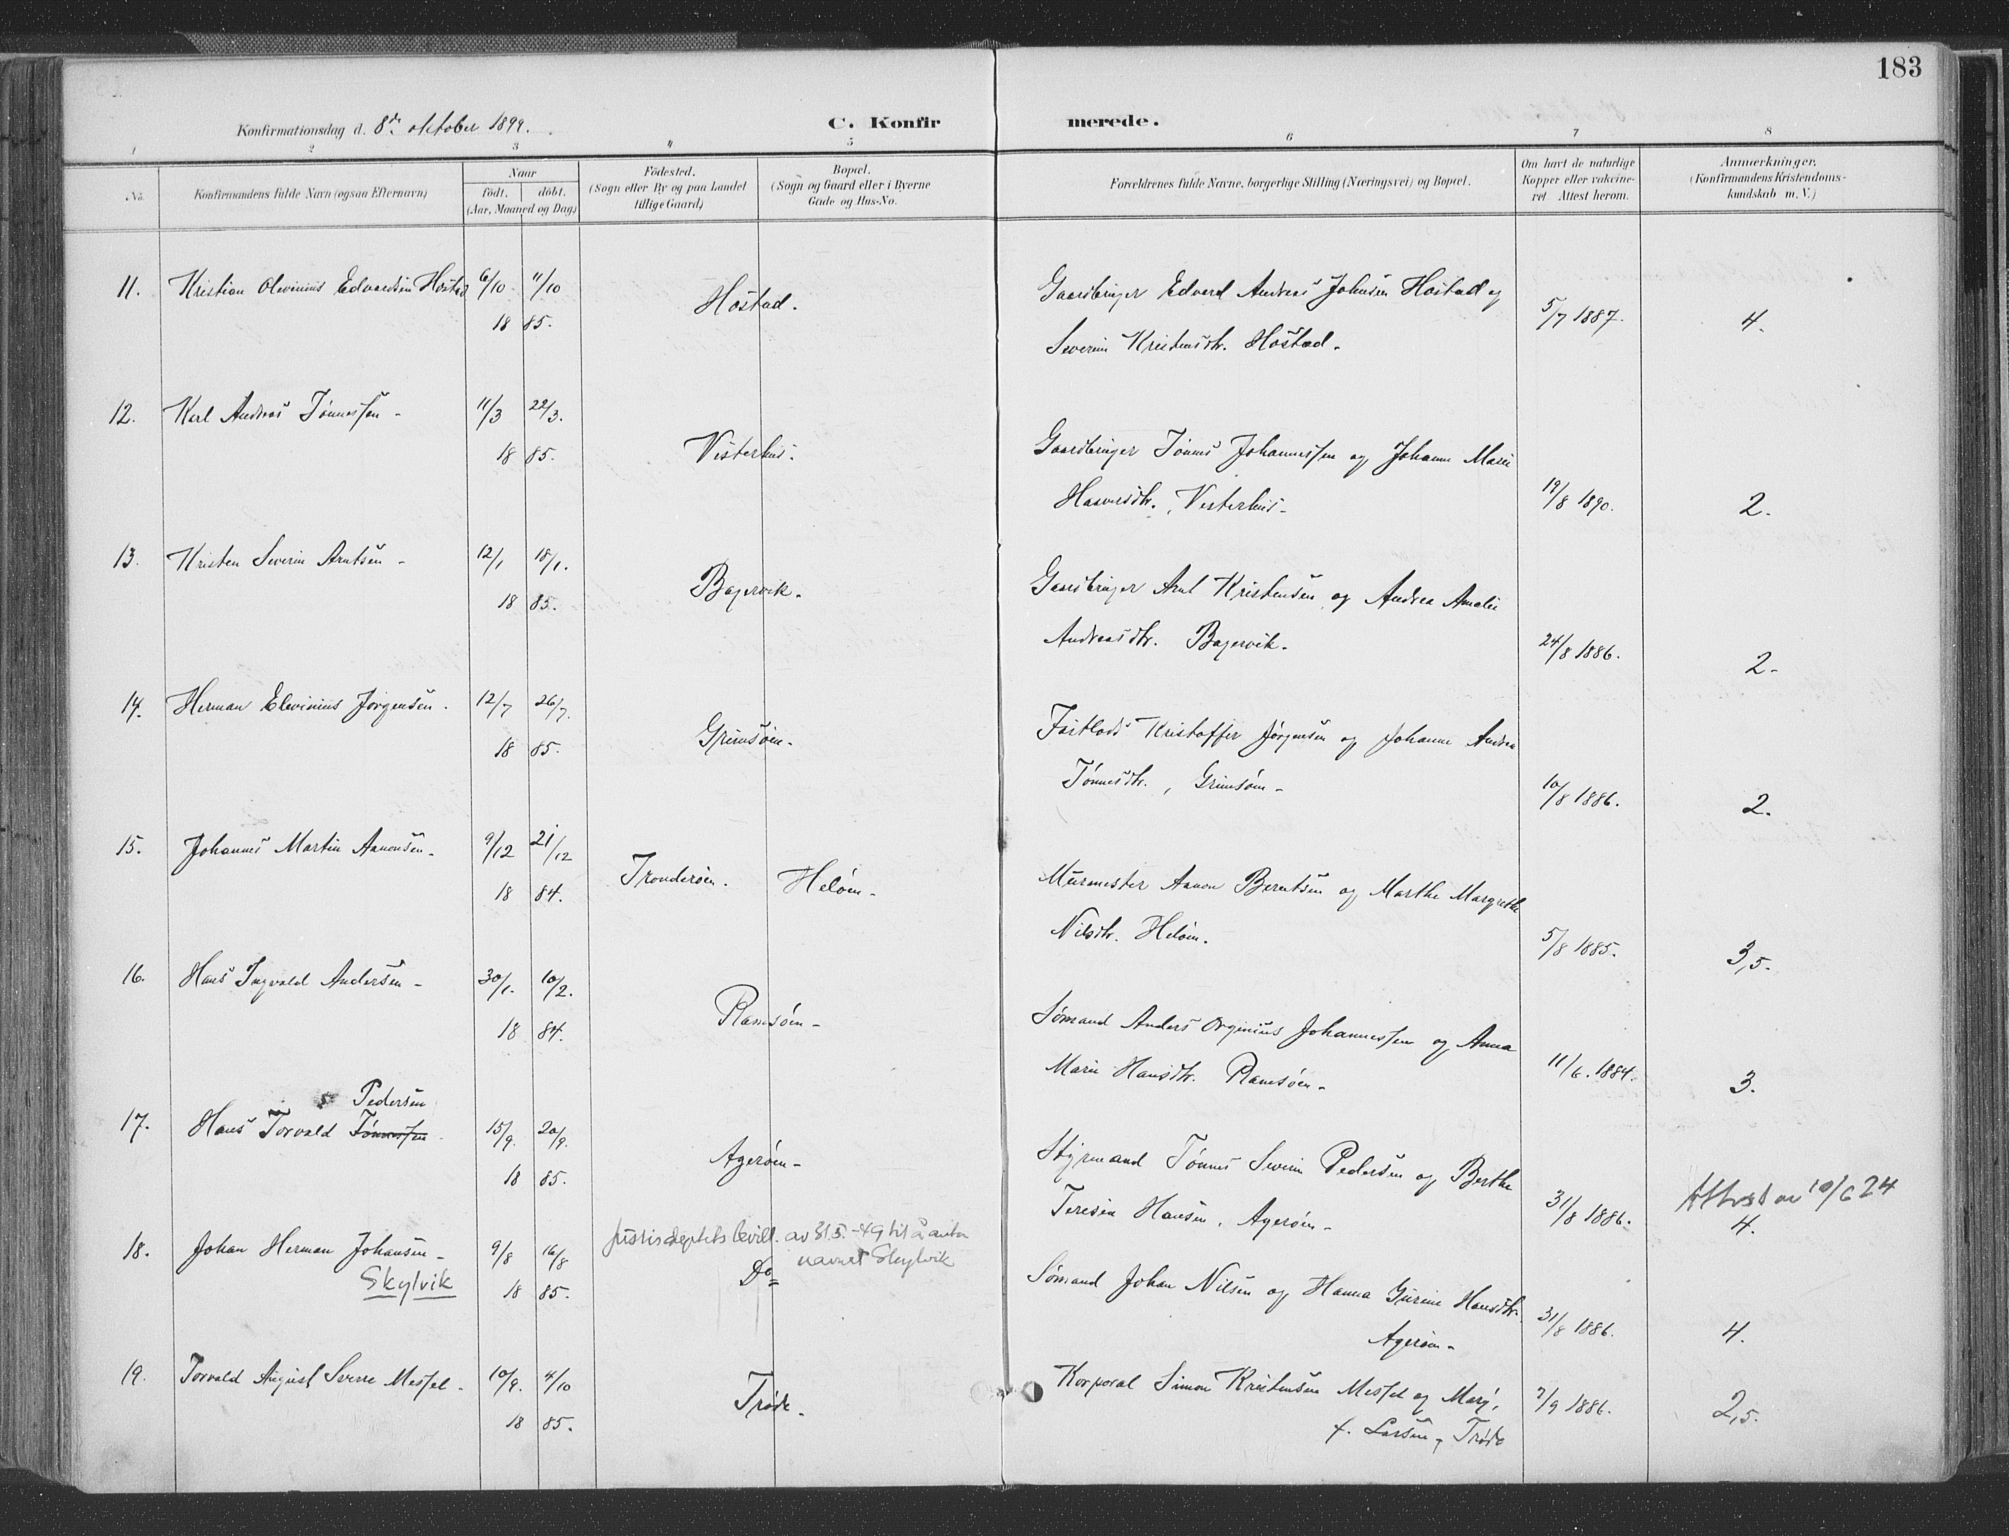 183
Konfirmationsdag d. 8de oktober 1899.
C. Konfirmerede.
1 2 3 4 5 6 7 8
No.
Konfirmandens fulde Navn (ogsaa Efternavn)
Naar
født. døbt.
(Aar, Maaned og Dag)
Fødested.
(Sogn eller By og paa Landet
tillige Gaard)
Bopæl.
(Sogn og Gaard eller i Byerne
Gade og Hus-No.
Forældrenes fulde Navne, borgerlige Stilling (Næringsvei) og Bopæl.
Om havt de naturlige
Kopper eller vakcine-
ret Attest herom.
Anmærkninger.
(Konfirmandens Kristendoms-
kundskab m. V.)
11. Kristian Olevinius Edvardsen Høstad 6/10 11/10
18 85.
Høstad.
Gaardbruger Edvard Andreas Johnsen Høstad og
Severine Kristensdtr. Høstad.
5/7 1887.
4.
12. Karl Andreas Tønnessen 11/3 22/3.
18 85.
Vesterhus.
Gaardbruger Tønnes Johannessen og Johanne Marie
Haavorsdtr., Vesterhus.
19/8 1890.
2.
13. Kristen Severin Arntsen 12/1 18/1.
18 85.
Bagervik.
Gaardbruger Arnt Kristensen og Andrea Amalie
Andreasdtr. Bagervik.
24/8 1886.
2.
14. Herman Elevinius Jørgensen. 12/7 26/7.
18 85.
Grimsøen.
Kristoffer Jørgensen og Johanne Andrea
Tønnesdtr., Grimsøen.
10/8 1886.
2.
15. Johannes Martin Aanonsen 9/12 21/12
18 84.
Tronderøen. Heløen.
Murmester Aanon Berntsen og Marthe Margrethe
Nilsdtr. Heløen.
5/8 1885.
3,5.
16. Hans Ingvald Andersen 30/1. 10/2.
18 84.
Ramsøen
Sømand Anders Orginius Johannessen og Anna
Marie Hansdtr. Ramsøen
11/6. 1884.
3.
Pedersen
17. Hans Torvald Tønnessen 15/9. 20/9.
18 85.
Agerøen
Styrmand Tønnes Severin Pedersen og Berthe
Teresia Hansen. Agerøen
31/8 1886.
Attest av 10/6 24
4.
18. Johan Herman Johansen 9/8 16/8
Skylvik
18 85.
Justisdeptets bevill. av 31.5.-49 til å anta
navnet Skylvik
Do
Sømand Johan Nilsen og Hanna Gurine Hansdtr.
Agerøen
31/8 1886.
4.
19. Torvald August Sverre Messel 10/9. 4/10
18 85.
Trøde.
Korporal Simon Kristensen Messel og Marg.
f. Larsen, Trøde
7/9 1886.
2,5.